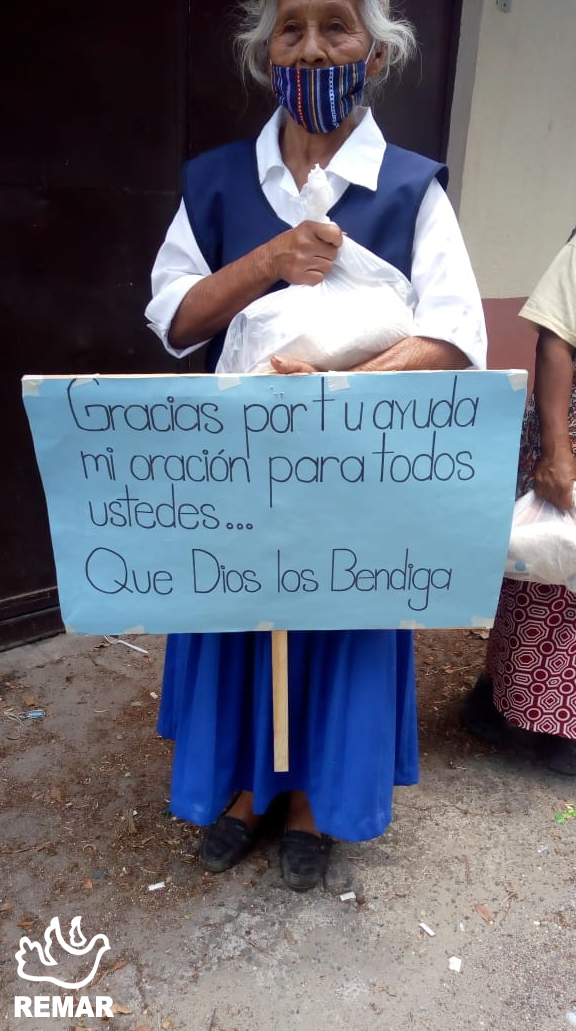 Gracias por tu ayuda
mi oración para todos
ustedes...
Que Dios los Bendiga
REMAR